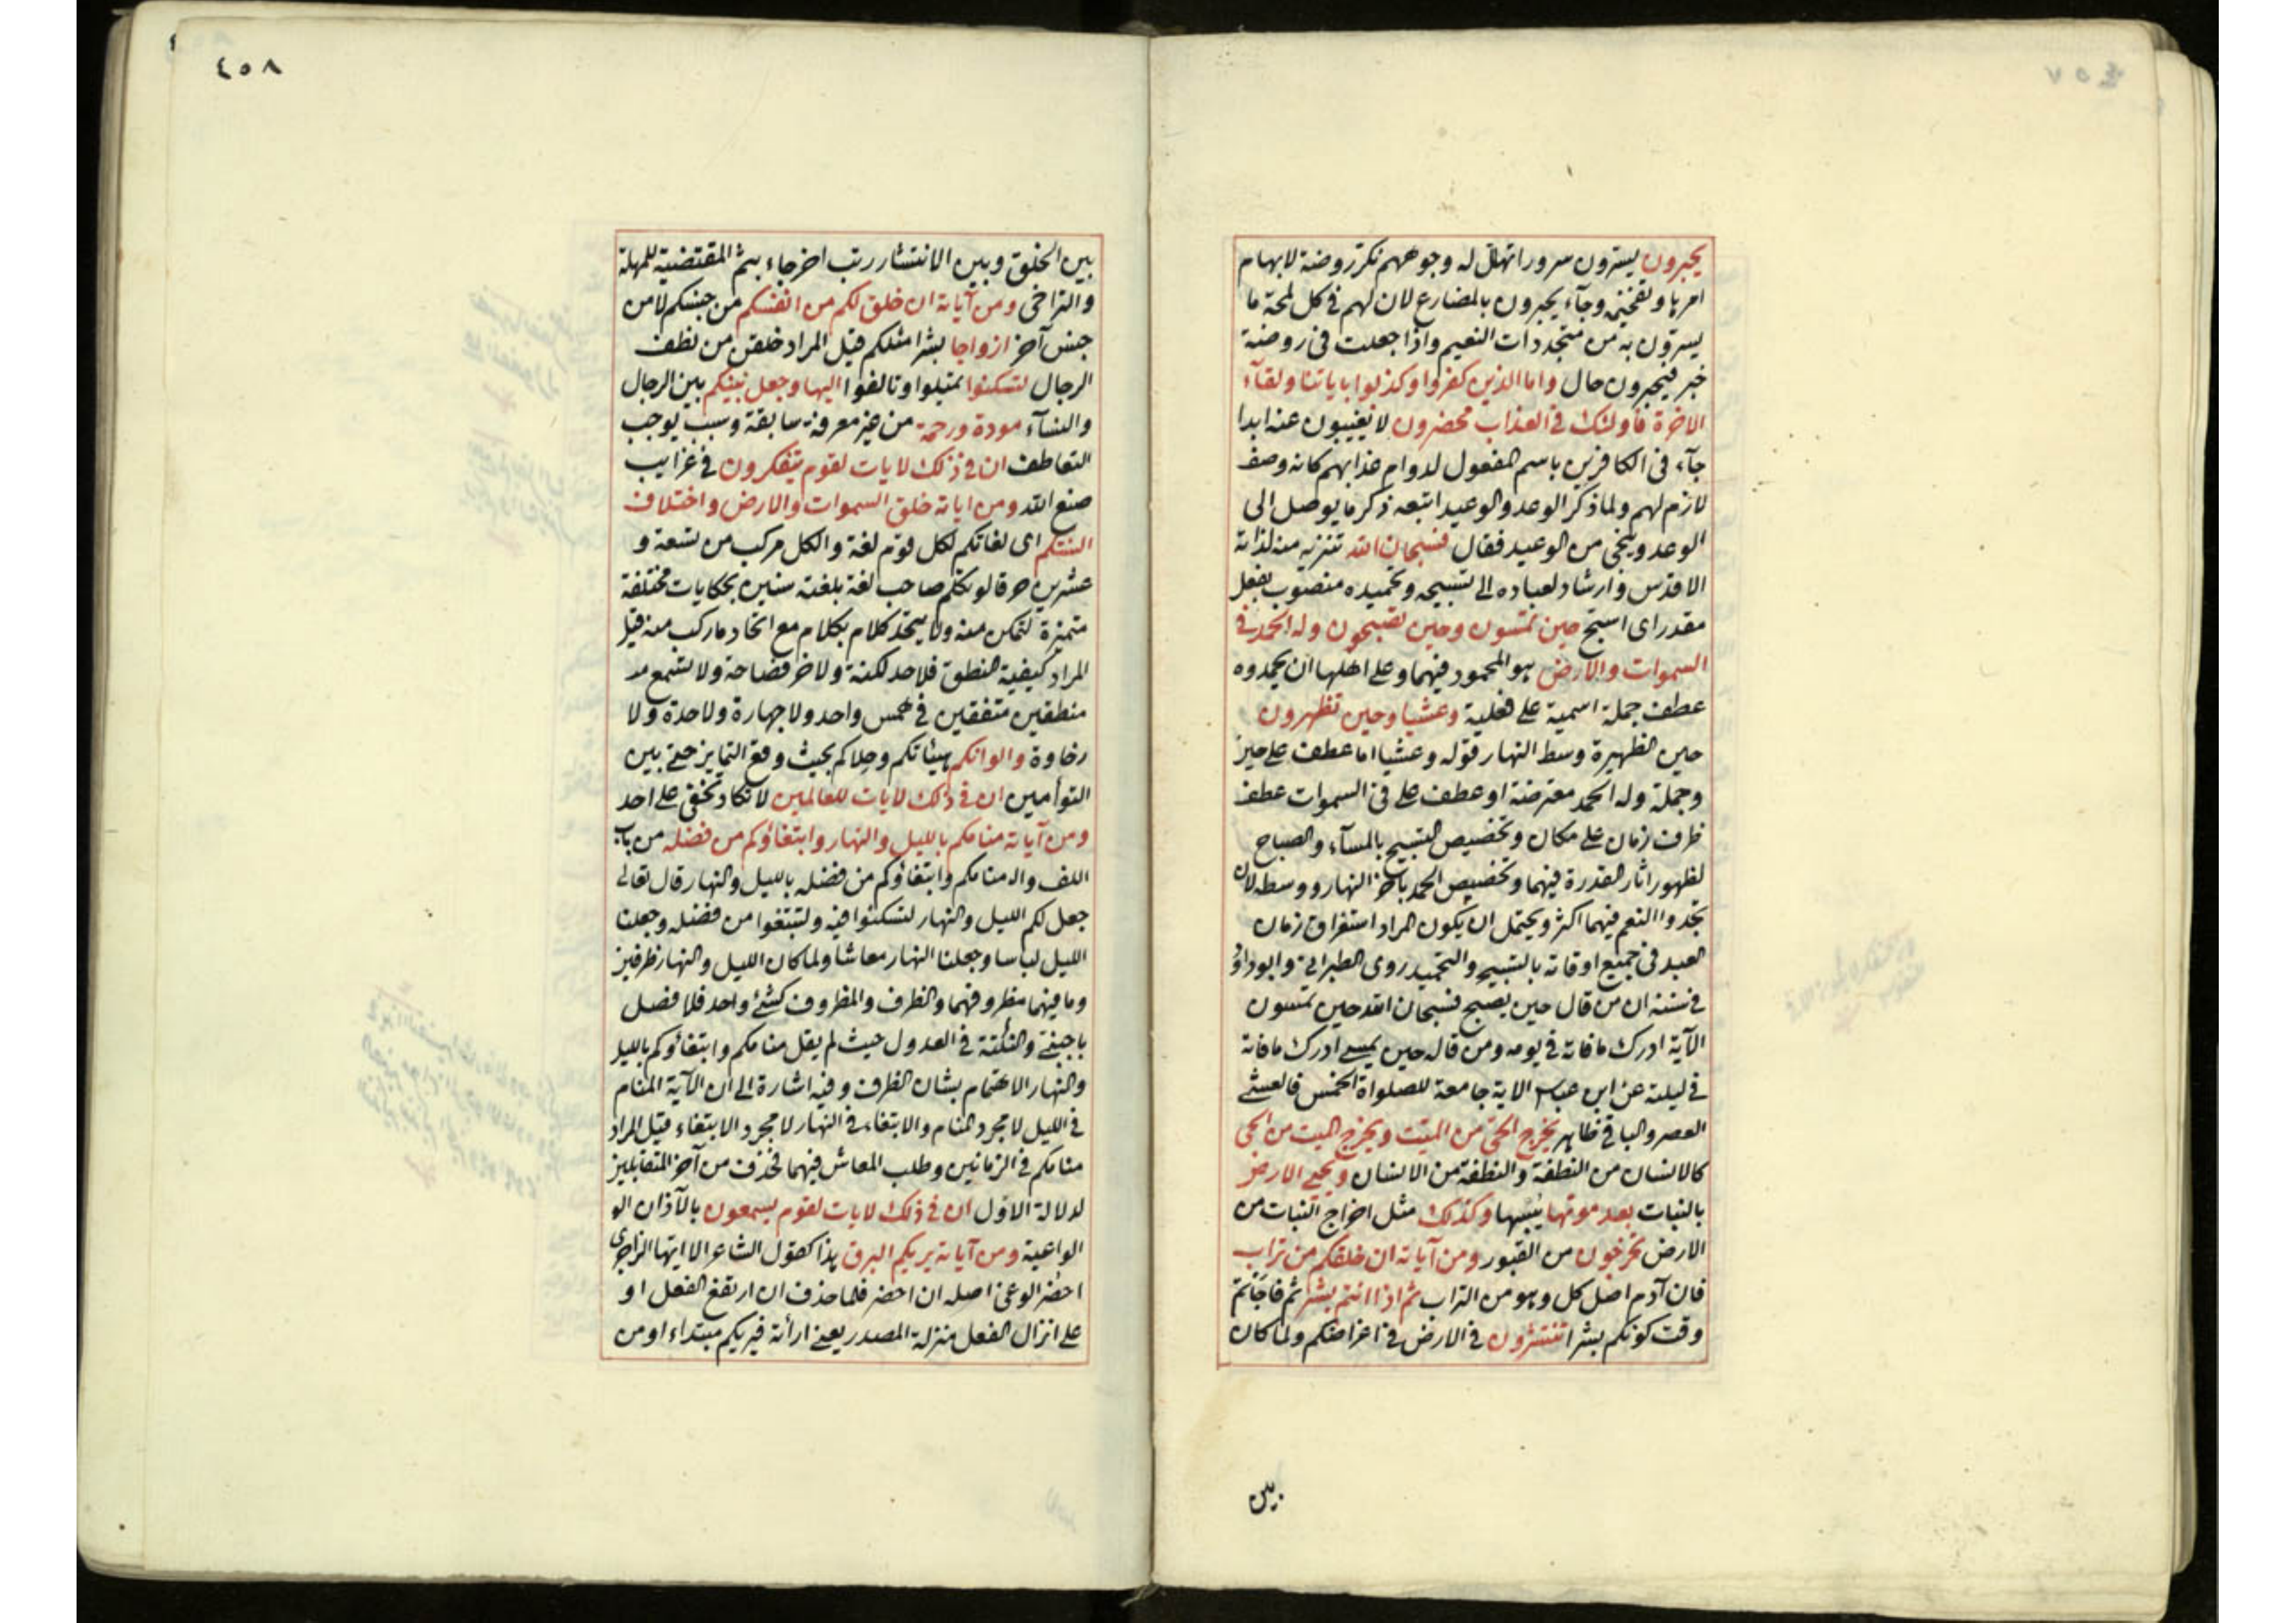 يحبرون يسترون سرورا تهلل له وجوههم نكر روضة لابهام
امرها وتفخيمه وجآء يحبرون بالمضارع لان لهم فى كل لمحة ما
يسرون به من متجددات النعيم واذا جعلت فى روضة
خبر فيحبرون حال واما الذين كفروا وكذبوا باياتنا ولقآء
الاخرة فاولئك فى العذاب محضرون لا يغيبون عنه ابدا
جآء فى الكافرين باسم المفعول لدوام عذابهم كانه وصف
لازم لهم ولما ذكر الوعد والوعيد اتبعه ذكر ما يوصل الى
الوعد وينجى من الوعيد فقال فسبحان الله تنزيه منه لذاته
الاقدس وارشاد لعباده الى تسبيحه وتحميده منصوب بفعل
مقدر اى اسبح حين تمسون وحين تصبحون وله الحمد فى
السموات والارض هو المحمود فيهما وعلى اهلها ان يحمدوه
عطف جملة اسمية على فعلية وعشيا وحين تظهرون
حين الظهيرة وسط النهار قوله وعشيا اما عطف على حين
وجملة وله الحمد معترضة او عطف على فى السموات عطف
ظرف زمان على مكان وتخصيص التسبيح بالمسآء والصباح
لظهور اثار القدرة فيهما وتخصيص الحمد باخر النهار ووسطه لان
تجدد النعم فيهما اكثر ويحتمل ان يكون المراد استغراق زمان
العبد فى جميع اوقاته بالتسبيح والتحميد روى الطبرانى وابو داود
فى سننه ان من قال حين يصبح فسبحان الله حين تمسون
الآية ادرك ما فاته فى يومه ومن قاله حين يمسى ادرك ما فاته
فى ليلته عن ابن عباس الاية جامعة للصلواة الخمس فالعشى
العصر والباقى ظاهر يخرج الحى من الميت ويخرج الميت من الحى
كالانسان من النطفة والنطفة من الانسان ويحيى الارض
بالنبات بعد موتها يبسها وكذلك مثل اخراج النبات من
الارض تخرجون من القبور ومن آياته ان خلقكم من تراب
فان آدم اصل كل وهو من التراب ثم اذا انتم بشر ثم فاجأتم
وقت كونكم بشرا تنتشرون فى الارض فى اغراضكم ولما كان
بين
٤٥٨
بين الخلق وبين الانتشار رتب اخرجاء بثم المقتضية للمهلة
والتراخى ومن آياته ان خلق لكم من انفسكم من جنسكم لا من
جنس آخر ازواجا بشرا مثلكم قيل المراد خلقن من نطف
الرجال لتسكنوا لتميلوا وتالفوا اليها وجعل بينكم بين الرجال
والنسآء مودة ورحمة من غير معرفة سابقة وسبب يوجب
التعاطف ان فى ذلك لايات لقوم يتفكرون فى غرايب
صنع الله ومن اياته خلق السموات والارض واختلاف
السنتكم اى لغاتكم لكل قوم لغة والكل مركب من تسعة و
عشرين حرفا لو تكلم صاحب لغة بلغته سنين بحكايات مختلفة
متميزة لتمكن منه ولا يتحد كلام بكلام مع اتحاد ما ركب منه قيل
المراد كيفية النطق فلاحد لكنة ولاخر فصاحة ولا تسمع
منطقين متفقين فى همس واحد ولا جهارة ولا حدة ولا
رخاوة والوانكم هيئاتكم وحلاكم بحيث وقع التمايز حتى بين
التوأمين ان فى ذلك لايات للعالمين لا تكاد تخفى على احد
ومن آياته منامكم بالليل والنهار وابتغاؤكم من فضله من باب
اللف واله منامكم وابتغاؤكم من فضله بالليل والنهار قال تعالى
جعل لكم الليل والنهار لتسكنوا فيه ولتبتغوا من فضله وجعلنا
الليل لباسا وجعلنا النهار معاشا ولما كان الليل والنهار ظرفين
وما فيهما مظروفهما والظرف والمظروف كشئ واحد فلا فصل
باجنبى والنكتة فى العدول حيث لم يقل منامكم وابتغاؤكم بالليل
والنهار الاهتمام بشان الظرف وفيه اشارة الى ان الآية المنام
فى الليل لا مجرد المنام والابتغاء فى النهار لا مجرد الابتغاء قيل المراد
منامكم فى الزمانين وطلب المعاش فيهما فحذف من آخر المتقابلين
لدلالة الاول ان فى ذلك لايات لقوم يسمعون بالآذان الو
الواعية ومن آياته يريكم البرق هذا كقول الشاعر الا ايها الزاجرى
احضر الوغى اصله ان احضر فلما حذف ان ارتفع الفعل او
على انزال الفعل منزلة المصدر يعنى ارأته فيريكم مبتداء او من